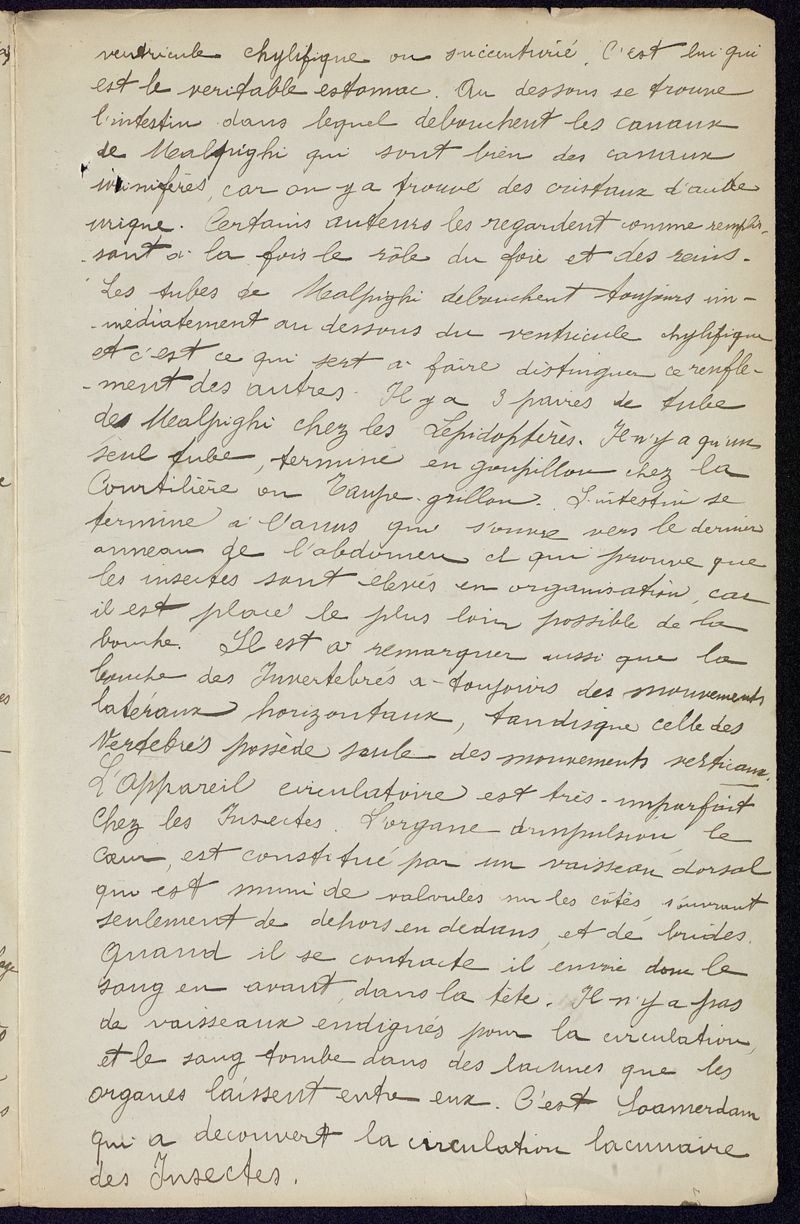 ventricule chylifique ou succenturié. C'est lui qui
est le veritable estomac. Au dessous se trouve
l'intestin dans lequel debouchent les canaux
de Malpighi qui sont bien des canaux
urinifères, car on y a trouvé des cristaux d'acide
urique. Certains auteurs les regardent comme remplis-
-sant à la fois le rôle du foie et des reins.
Les tubes de Malpighi debouchent toujours im-
-médiatement au dessous du ventricule chylifique
et c'est ce qui sert a faire distinguer ce renfle-
-ment des autres. Il y a 3 paires de tube
des Malpighi chez les Lepidoptères. Il n'y a qu'un
seul tube, terminé en goupillon chez la
Courtilière ou Taupe-grillon. L'intestin se
termine à l'anus qui s'ouvre vers le dernier
anneau de l'abdomen et qui prouve que
les insectes sont élevés en organisation, car
il est placé le plus loin possible de la
bouche. Il est à remarquer aussi que la
bouche des Invertebrés a toujours des mouvements
latéraux horizontaux, tandisque celle des
Vertebrés possède seule des mouvements verticaux.
L'Appareil circulatoire est très-imparfait
Chez les Insectes. L'organe d'impulsion, le
Cœur, est constitué par un vaisseau dorsal
qui est muni de valvules sur les côtés, s'ouvrant
seulement de dehors en dedans, et de brides.
Quand il se contracte il envoie donc le
sang en avant, dans la tête. Il n'y a pas
de vaisseaux endigués pour la circulation,
et le sang tombe dans des lacunes que les
organes laissent entre eux. C'est Soamerdam
qui a decouvert la circulation lacunaire
des Insectes.